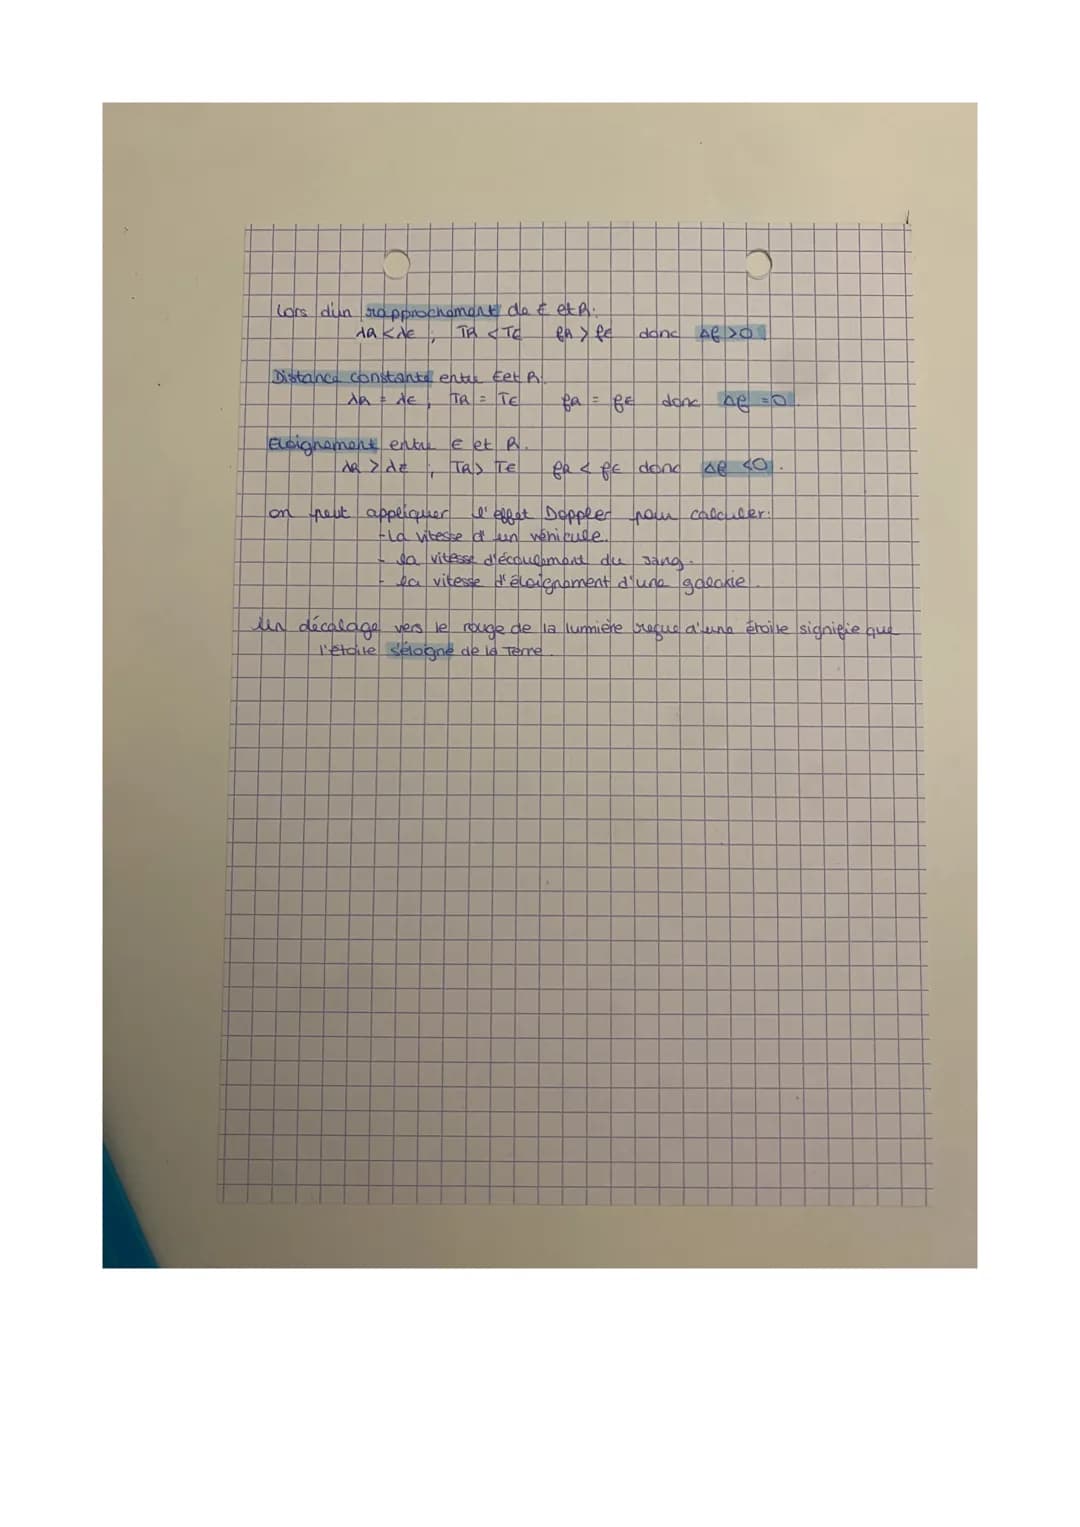 Lors d'un rapprochement de E et R.
λR < λE ; TR < TE fR > fE donc Δf > 0
Distance constante entre E et R.
λR = λE ; TR = TE fR = fE donc Δf = 0.
Eloignement entre E et R.
λR > λE ; TR > TE fR < fE donc Δf < 0.
on peut appliquer l'effet Doppler pour calculer:
- La vitesse d'un véhicule.
- la vitesse d'écoulement du sang.
- la vitesse d'éloignement d'une galaxie.
Un décalage vers le rouge de la lumière reçue d'une étoile signifie que
l'étoile s'élogne de la Terre.